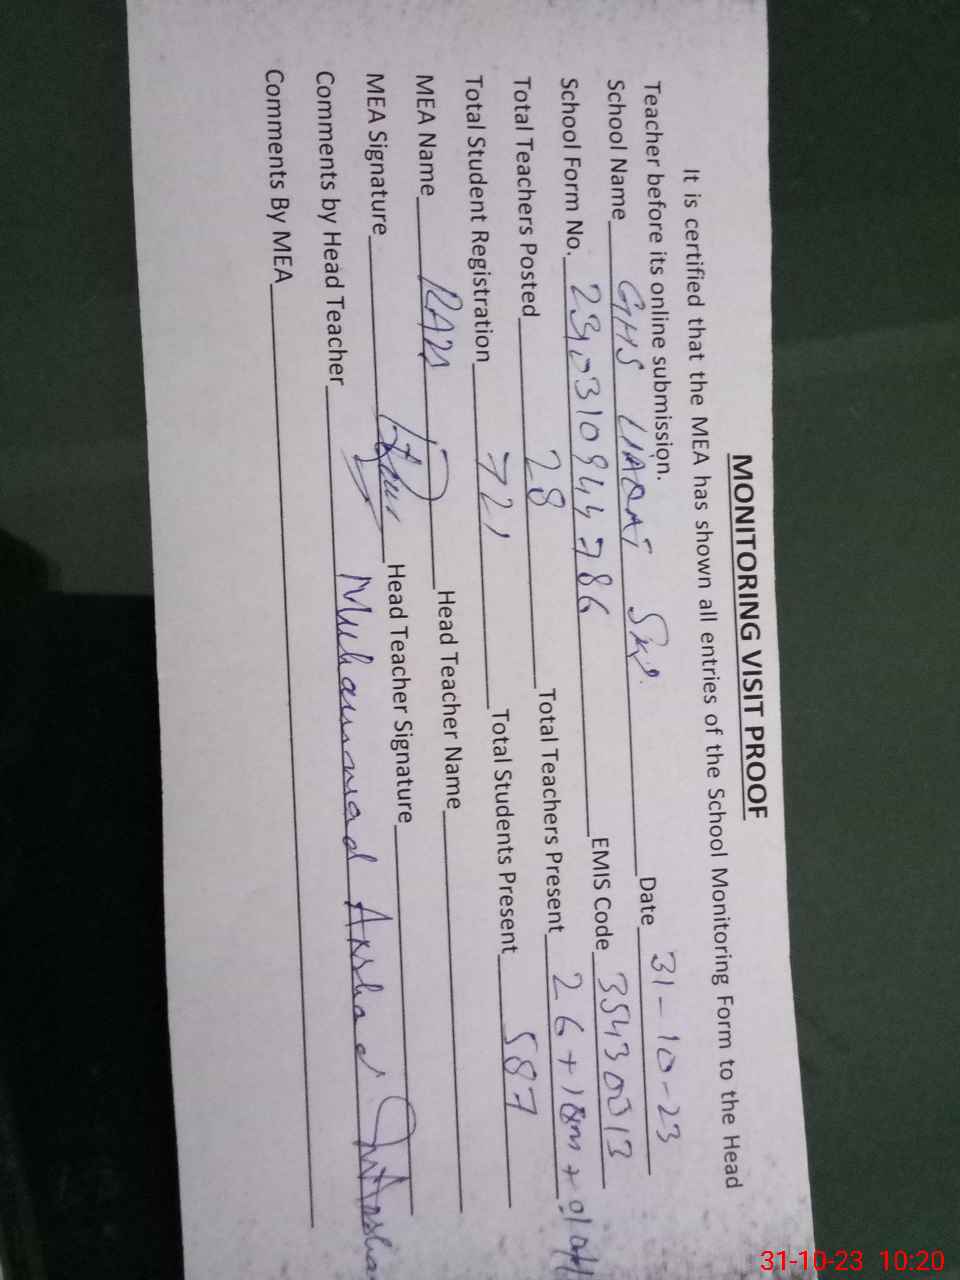 MONITORING VISIT PROOF
It is certified that the MEA has shown all entries of the School Monitoring Form to the Head
Teacher before its online submission.
School Name GHS LIAQAT SKP. Date 31-10-23
School Form No. 231031094478 6 EMIS Code 35430013
Total Teachers Posted 28 Total Teachers Present 26 + 1
Total Student Registration 721 Total Students Present 587
MEA Name Head Teacher Name
MEA Signature Head Teacher Signature
Comments by Head Teacher Muhammad Arshad
Comments By MEA
31-10-23 10:20